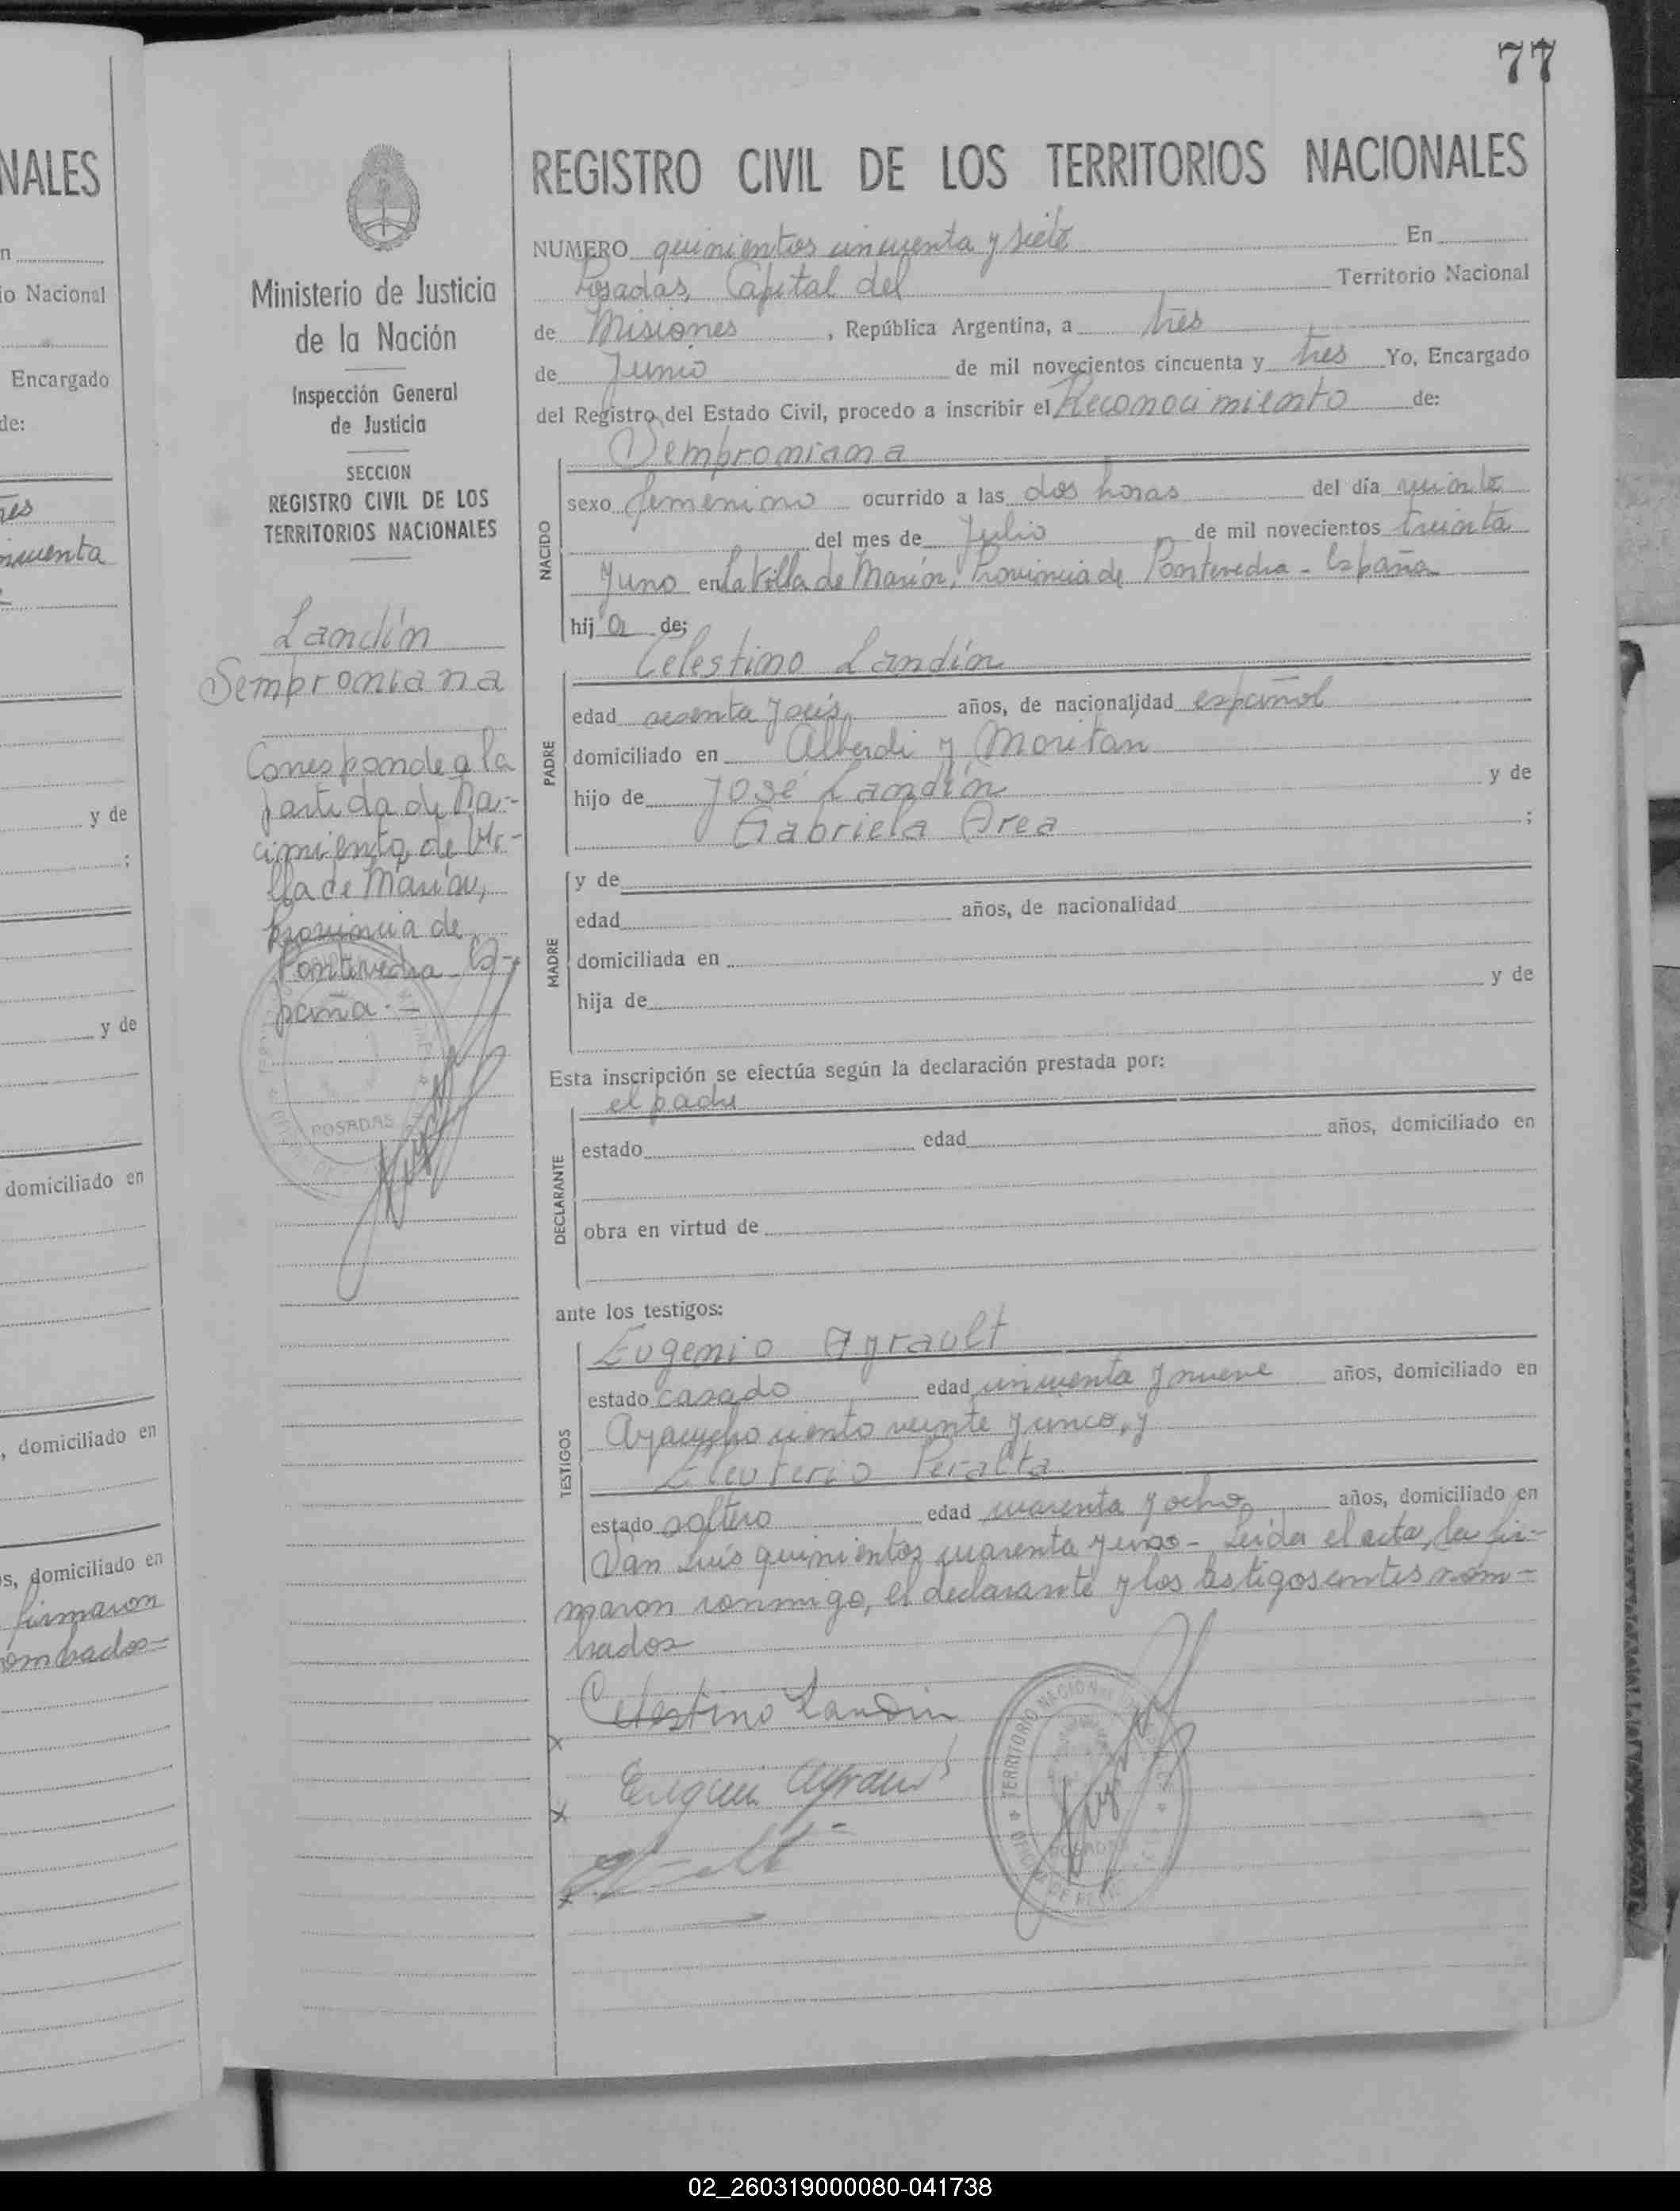 77
NALES
n
io Nacional
Encargado
de:
res
ncuenta
y de
;
y de
domiciliado en
, domiciliado en
s, domiciliado en
firmaron
ombrados=
Ministerio de Justicia
de la Nación
Inspección General
de Justicia
SECCION
REGISTRO CIVIL DE LOS
TERRITORIOS NACIONALES
Landín
Semproniana
Corresponde a la
partida de Na-
cimiento de Vi-
lla de Marín,
Provincia de
Pontevedra - Es-
paña.=
POSADAS
REGISTRO CIVIL DE LOS TERRITORIOS NACIONALES
NUMERO quinientos cincuenta y siete En
Posadas, Capital del Territorio Nacional
de Misiones, República Argentina, a tres
de Junio de mil novecientos cincuenta y tres Yo, Encargado
del Registro del Estado Civil, procedo a inscribir el Reconocimiento de:
NACIDO
Semproniana
sexo femenino ocurrido a las dos horas del día veinte
del mes de Julio de mil novecientos treinta
y uno en La Villa de Marín, Provincia de Pontevedra - España
hija de;
PADRE
Celestino Landín
edad sesenta y seis años, de nacionalidad español
domiciliado en Alberdi y Moritan
hijo de José Landín y de
Gabriela Area ;
MADRE
y de
edad años, de nacionalidad
domiciliada en
hija de y de
Esta inscripción se efectúa según la declaración prestada por:
DECLARANTE
el padre
estado edad años, domiciliado en
obra en virtud de
ante los testigos:
TESTIGOS
Eugenio Ayrault
estado casado edad cincuenta y nueve años, domiciliado en
Ayacucho ciento veinte y cinco, y
Eleuterio Peralta
estado soltero edad cuarenta y ocho años, domiciliado en
San Luis quinientos cuarenta y uno - Leída el acta, la fir-
maron conmigo, el declarante y los testigos antes nom-
brados
Celestino Landin
TERRITORIO NACIONAL
POSADAS
02_260319000080-041738